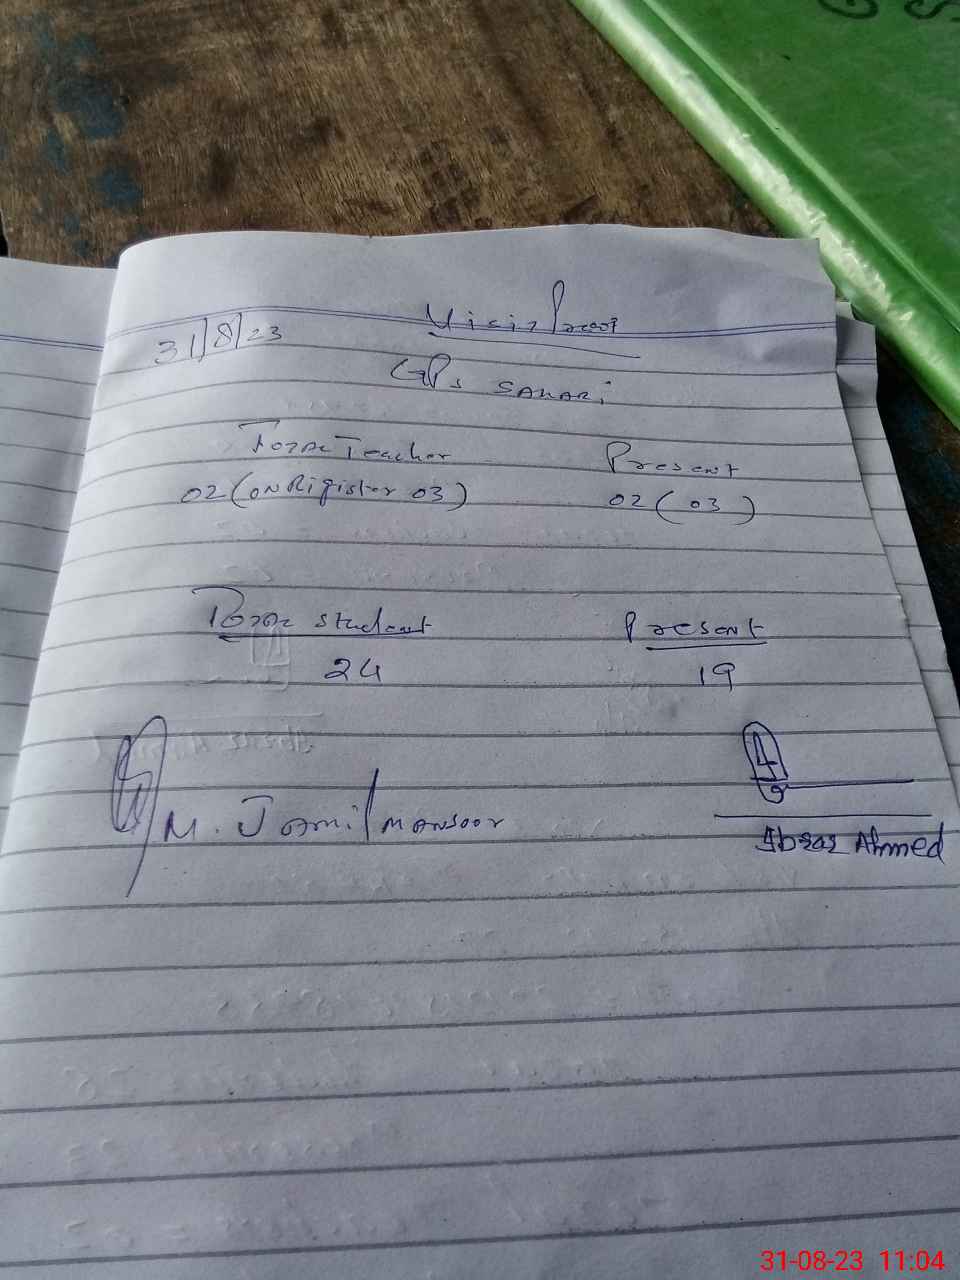 Visit Proof
31/8/23
GPS SAHARi
Total Teacher Present
02 (ON Rigister 03) 02 ( 03 )
Total student Present
24 19
M. Jamil MANSOOR
Ibrar Ahmed
31-08-23 11:04